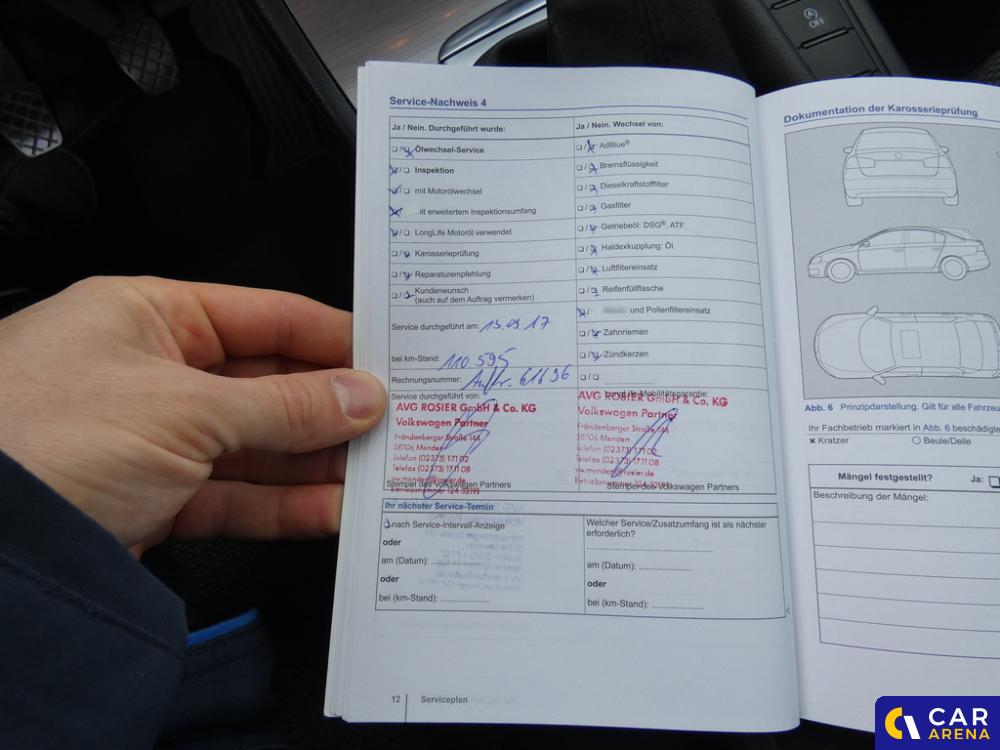 OFF
Service-Nachweis 4
Ja / Nein. Durchgeführt wurde:
Ölwechsel-Service
Inspektion
mit Motorölwechsel
mit erweitertem Inspektionsumfang
LongLife Motoröl verwendet
Karosserieprüfung
Reparaturempfehlung
Kundenwunsch
(auch auf dem Auftrag vermerken)
Service durchgeführt am: 13.09.17
bei km-Stand: 110 595
Rechnungsnummer: Auftr. 61696
Ja / Nein. Wechsel von:
AdBlue®
Bremsflüssigkeit
Dieselkraftstofffilter
Gasfilter
Getriebeöl: DSG®, ATF
Haldexkupplung: Öl
Luftfiltereinsatz
Reifenfüllflasche
und Pollenfiltereinsatz
Zahnriemen
Zündkerzen
Service durchgeführt von:
AVG ROSIER GmbH & Co. KG
Volkswagen Partner
Fröndenberger Straße 144
58706 Menden
Telefon (02373) 171 02
Telefax (02373) 171 08
vw.menden@rosier.de
Stempel des Volkswagen Partners
Mobilitätsgarantie:
AVG ROSIER GmbH & Co. KG
Volkswagen Partner
Fröndenberger Straße 144
58706 Menden
Telefon (02373) 171 02
Telefax (02373) 171 08
vw.menden@rosier.de
Stempel des Volkswagen Partners
Ihr nächster Service-Termin
nach Service-Intervall-Anzeige
oder
am (Datum):
oder
bei (km-Stand):
Welcher Service/Zusatzumfang ist als nächster
erforderlich?
am (Datum):
oder
bei (km-Stand):
12 Serviceplan
Dokumentation der Karosserieprüfung
Abb. 6 Prinzipdarstellung. Gilt für alle Fahrzeu
Ihr Fachbetrieb markiert in Abb. 6 beschädigte
Kratzer
Beule/Delle
Mängel festgestellt? Ja:
Beschreibung der Mängel:
CAR
ARENA